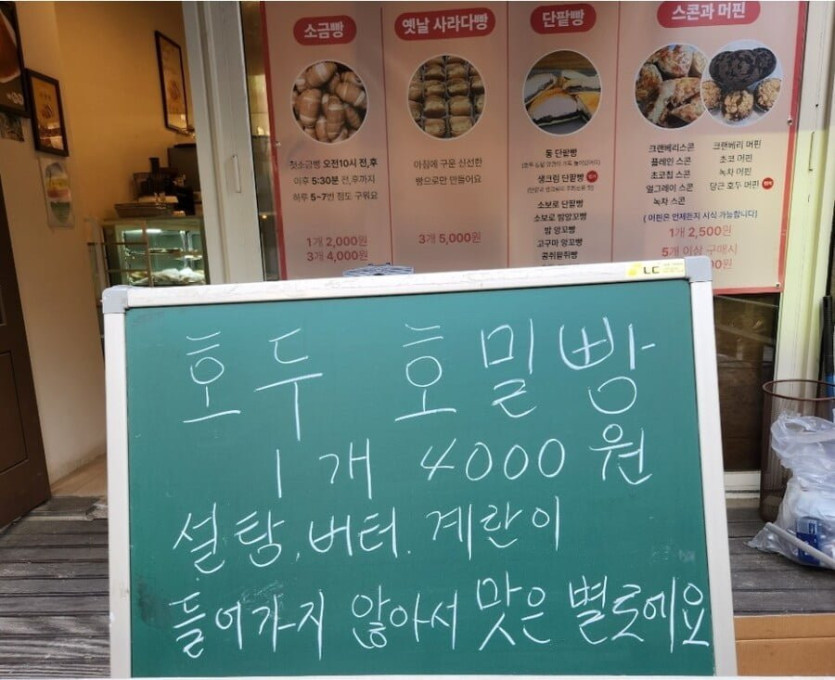 소금빵
옛날 사라다빵
단팥빵
스콘과 머핀
첫소금빵 오전10시 전,후
이후 5:30분 전,후까지
하루 5~7번 정도 구워요
1개 2,000원
3개 4,000원
아침에 구운 신선한
빵으로만 만들어요
3개 5,000원
통 단팥빵
생크림 단팥빵
소보로 단팥빵
소보로 밤앙꼬빵
밤 앙꼬빵
고구마 앙꼬빵
크랜베리스콘
플레인 스콘
초코칩 스콘
얼그레이 스콘
녹차 스콘
크랜베리 머핀
초코 머핀
녹차 머핀
당근 호두 머핀
( 머핀은 언제든지 시식 가능합니다)
1개 2,500원
5개 이상 구매시
LC
호두 호밀빵
1개 4000원
설탕, 버터. 계란이
들어가지 않아서 맛은 별로에요